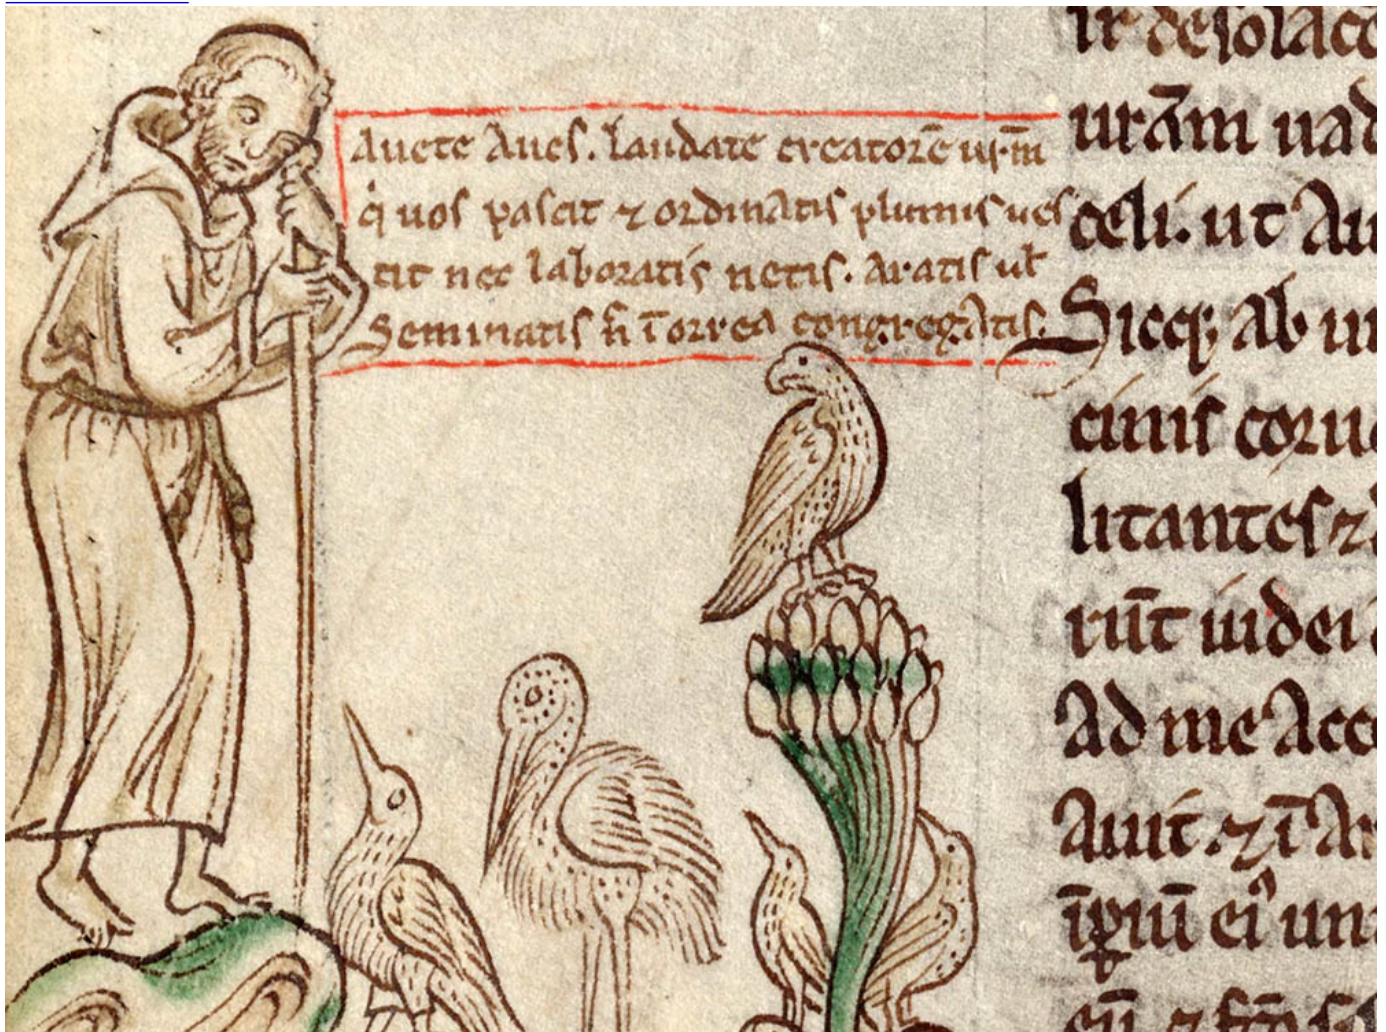 Auete Aues. laudate creatorē ur̄m
q̇ uos pascit ⁊ ordinatis plumis ues
tit nec laboratis netis. Aratis ul̄
Seminatis n̄ ī orrea congregatis.
ir desolacō
urām uad
celi. ut Au
Sicq; ab ui
cinis coru
litantes ⁊
rūt iudei
Ad me Acc
Auit. ⁊ ī Ar